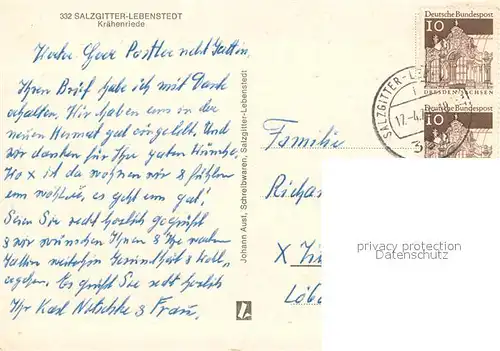 332 SALZGITTER-LEBENSTEDT
Krähenriede
Werter Herr Postler nebst Gattin.
Ihren Brief habe ich mit Dank
erhalten. Wir haben uns in der
neuen Heimat gut eingelebt. Und
wir danken für Ihre guten Wünsche.
Wo x ist da wohnen wir & fühlen
uns wohl, es geht uns gut!
Seien Sie recht herzlich gegrüßt
& wir wünschen Ihnen & Ihre
Gattin weiterhin Gesundheit & Wohl-
ergehen. Es grüßt Sie recht herzlich
Ihr Karl Nitschke & Frau.
Johann Aust, Schreibwaren, Salzgitter-Lebenstedt
Familie
Richar
X
Löba
Deutsche Bundespost
10
DRESDEN/SACHSEN
10
SALZGITTER-LE
privacy protection
Datenschutz